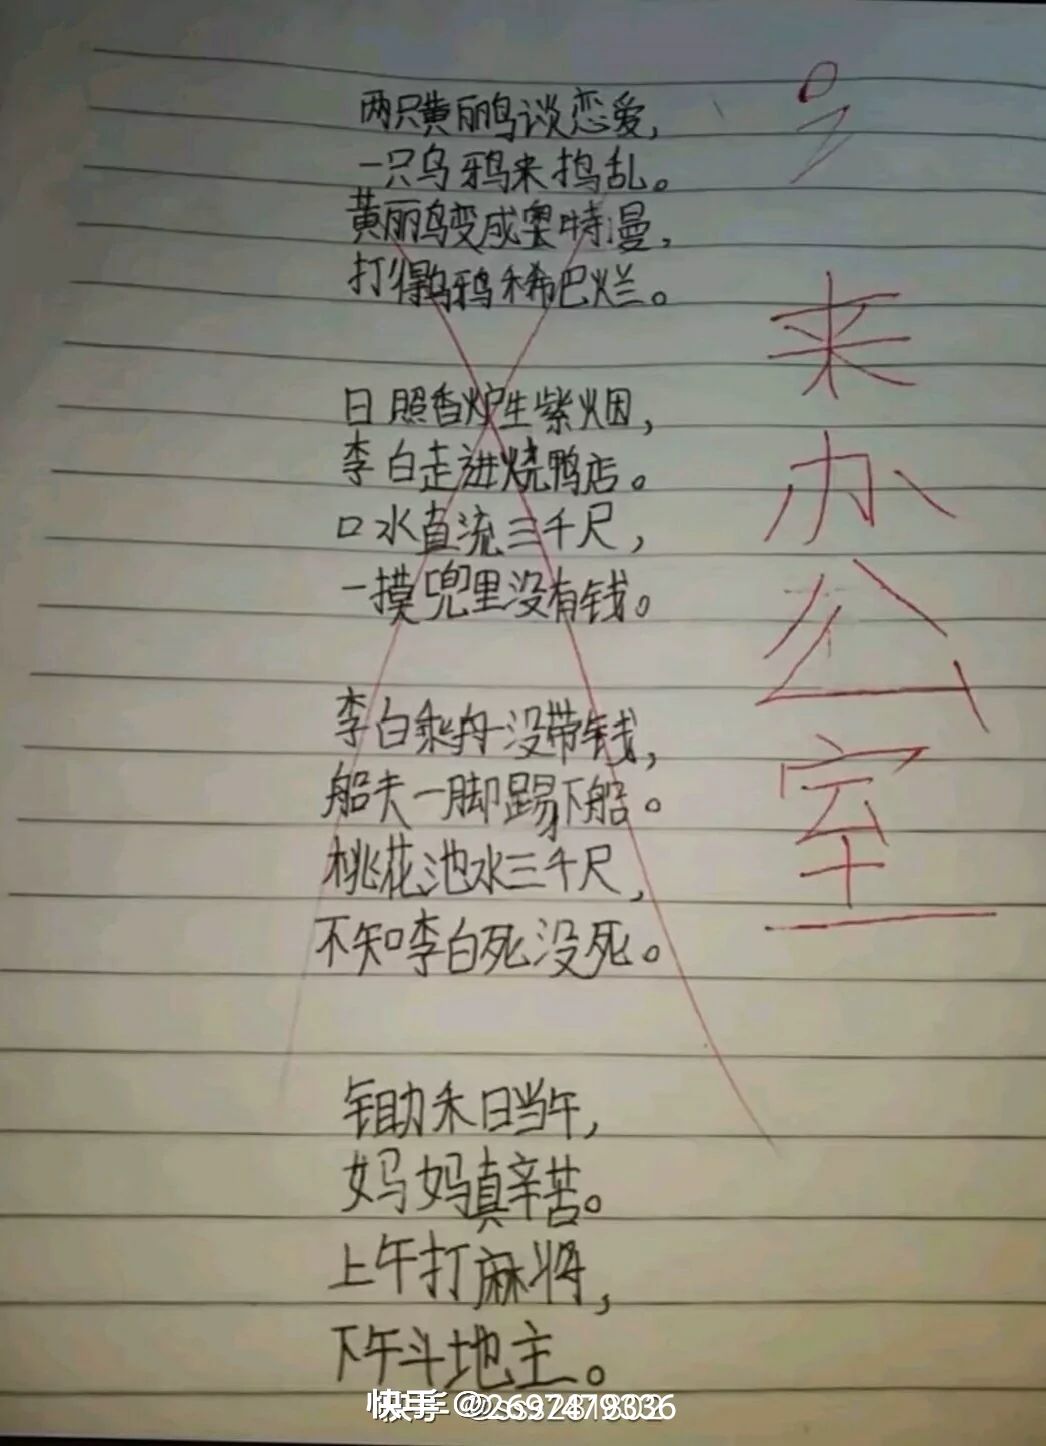 两只黄丽鸟谈恋爱,
一只乌鸦来捣乱。
黄丽鸟变成奥特漫,
打得乌鸦稀巴烂。
日照香炉生紫烟,
李白走进烧鸭店。
口水直流三千尺,
一摸兜里没有钱。
李白乘舟没带钱,
船夫一脚踢下船。
桃花池水三千尺,
不知李白死没死。
锄禾日当午,
妈妈真辛苦。
上午打麻将,
下午斗地主。
来办公室
快手